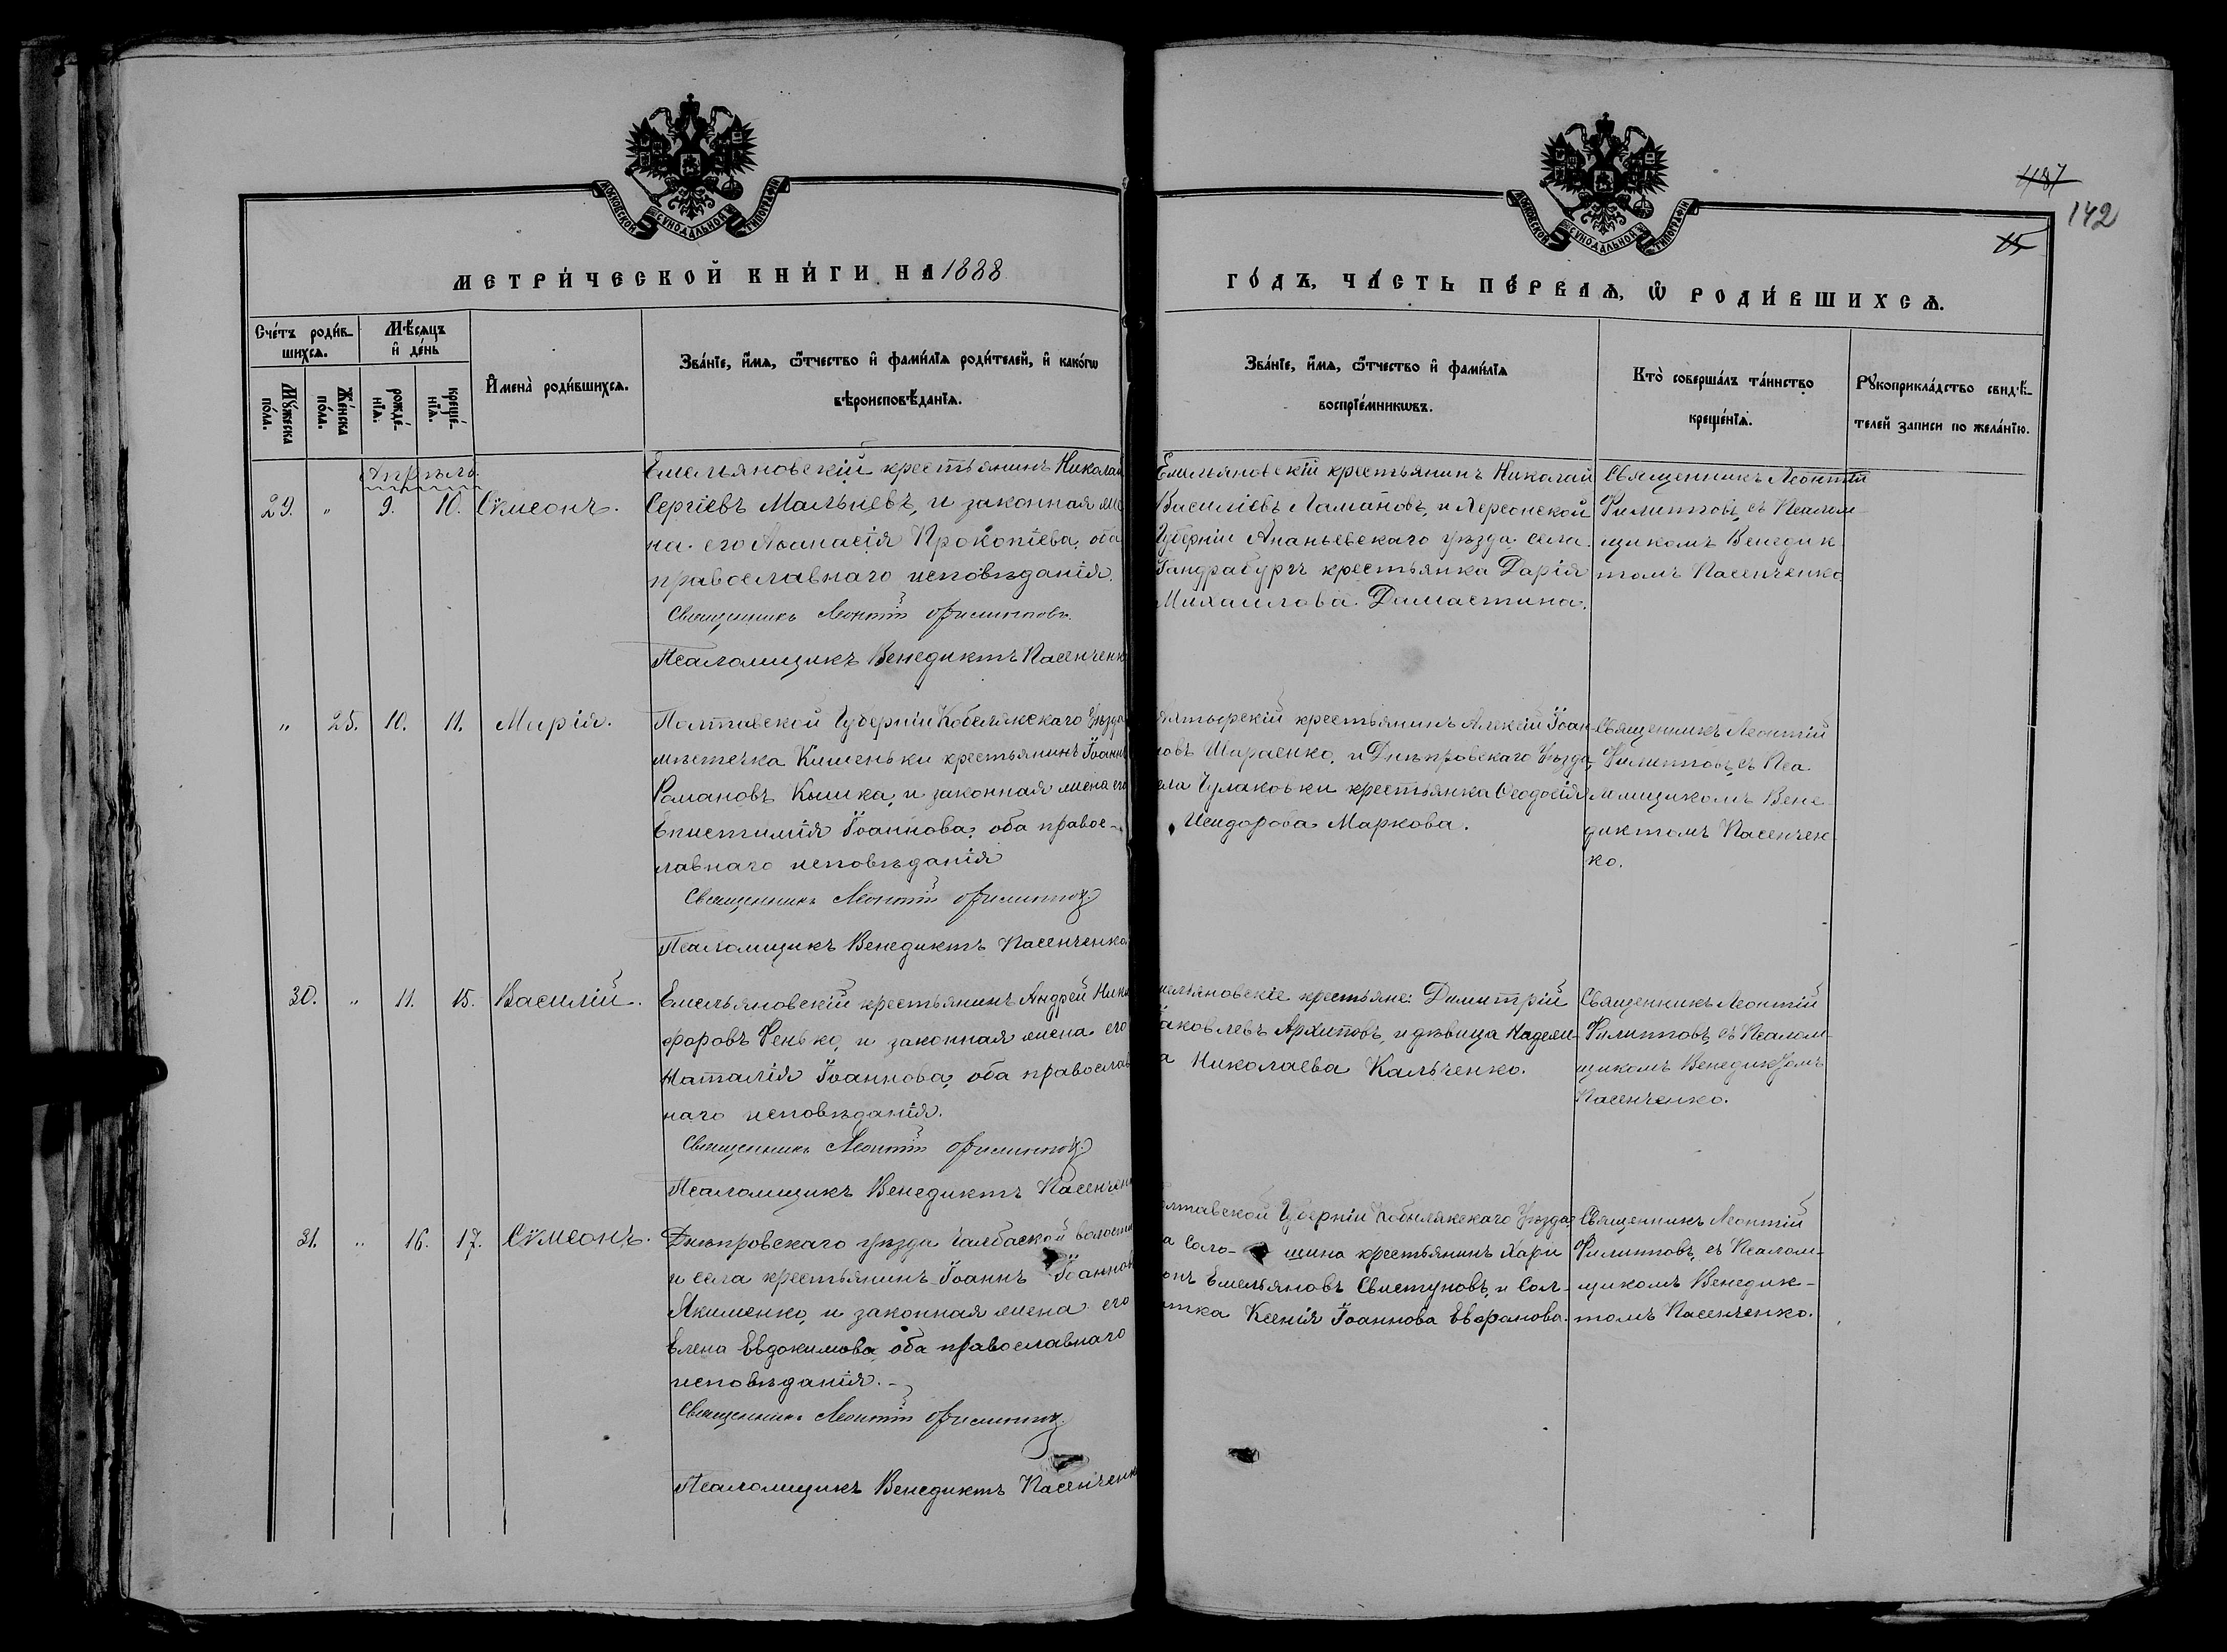 МОСКОВСКОЙ СѴНОДАЛЬНОЙ ТИПОГРАФІИ
МОСКОВСКОЙ СѴНОДАЛЬНОЙ ТИПОГРАФІИ
142
15
МЕТРИ́ЧЕСКОЙ КНИ́ГИ НА 1888
ГО́ДЪ, ЧА́СТЬ ПЕ́РВАѦ, Ѡ҆ РОДИ́ВШИХСѦ.
Сче́тъ роди́в-
шихсѧ.
Мѣ́сѧцъ
и҆ де́нь
Мꙋ́жеска
по́ла.
Же́нска
по́ла.
рожде́-
нїѧ.
креще́-
нїѧ.
И҆мена̀ роди́вшихсѧ.
Зва́нїе, и҆́мѧ, ѻ҆́тчество и҆ фами́лїѧ роди́телей, и҆ како́гѡ
вѣроисповѣ́данїѧ.
Зва́нїе, и҆́мѧ, ѻ҆́тчество и҆ фами́лїѧ
воспрїе́мникѡвъ.
Кто̀ соверша́лъ та́инство
креще́нїѧ.
Рꙋкоприкла́дство свидѣ́-
телей записи по жела́нїю.
Апрѣль.
29. " 9. 10. Сѵмеонъ.
Емельяновскій крестьянинъ Николай
Сергіевъ Мальцевъ, и законная же
на его Аѳанасія Прокопіева, оба
православнаго исповѣданія.
Священникъ Леонтій Филипповъ.
Псаломщикъ Венедиктъ Пасенченк
Емельяновскій крестьянинъ Николай
Василіевъ Ломановъ, и Херсонской
Губерніи Ананьевскаго уѣзда села
Гандрабургъ крестьянка Дарія
Михаилова Дамастина.
Священникъ Леонтій
Филипповъ, съ Псалом-
щикомъ Венедик
томъ Пасенченко
" 25. 10. 11. Марія.
Полтавской Губерніи Кобелякскаго Уѣзда
мѣстечка Кишеньки крестьянинъ Іоаннъ
Романовъ Кышка, и законная жена его
Епистимія Іоаннова, оба правос-
лавнаго исповѣданія
Священникъ Леонтій Филипповъ.
Псаломщикъ Венедиктъ Пасенченко
крестьянинъ Алексій Іоан-
новъ Шираенко, и Днѣпровскаго Уѣзда,
ела Чулаковки крестьянка Ѳеодосія
Исидорова Маркова.
Священникъ Леонтій
Филипповъ, съ Пса
ломщикомъ Вене
диктомъ Пасенчен
ко.
30. " 11. 15. Василій.
Емельяновскій крестьянинъ Андрей Ники
форовъ Фенько, и законная жена его
Наталія Іоаннова, оба православ
наго исповѣданія.
Священникъ Леонтій Филипповъ.
Псаломщикъ Венедиктъ Пасенчен
мельяновскіе крестьяне: Димитрій
аковлевъ Архиповъ, и дѣвица Надеж-
а Николаева Кальченко.
Священникъ Леонтій
Филипповъ, съ Псалом-
щикомъ Венедиктомъ
Пасенченко.
31. " 16. 17. Сѵмеонъ.
Днѣпровскаго уѣзда Чалбаской волости
и села крестьянинъ Іоаннъ Іоаннов
Якименко, и законная жена его
Елена Евдокимова, оба православнаго
исповѣданія.
Священникъ Леонтій Филипповъ.
Псаломщикъ Венедиктъ Пасенченк
олтавской Губерніи Кобелякскаго Уѣзда,
а Соло- шина крестьянинъ Хари
онъ Емельяновъ Свистуновъ, и Сол-
атка Ксенія Іоаннова
Священникъ Леонтій
Филипповъ, съ Псалом-
щикомъ Венедик-
томъ Пасенченко.